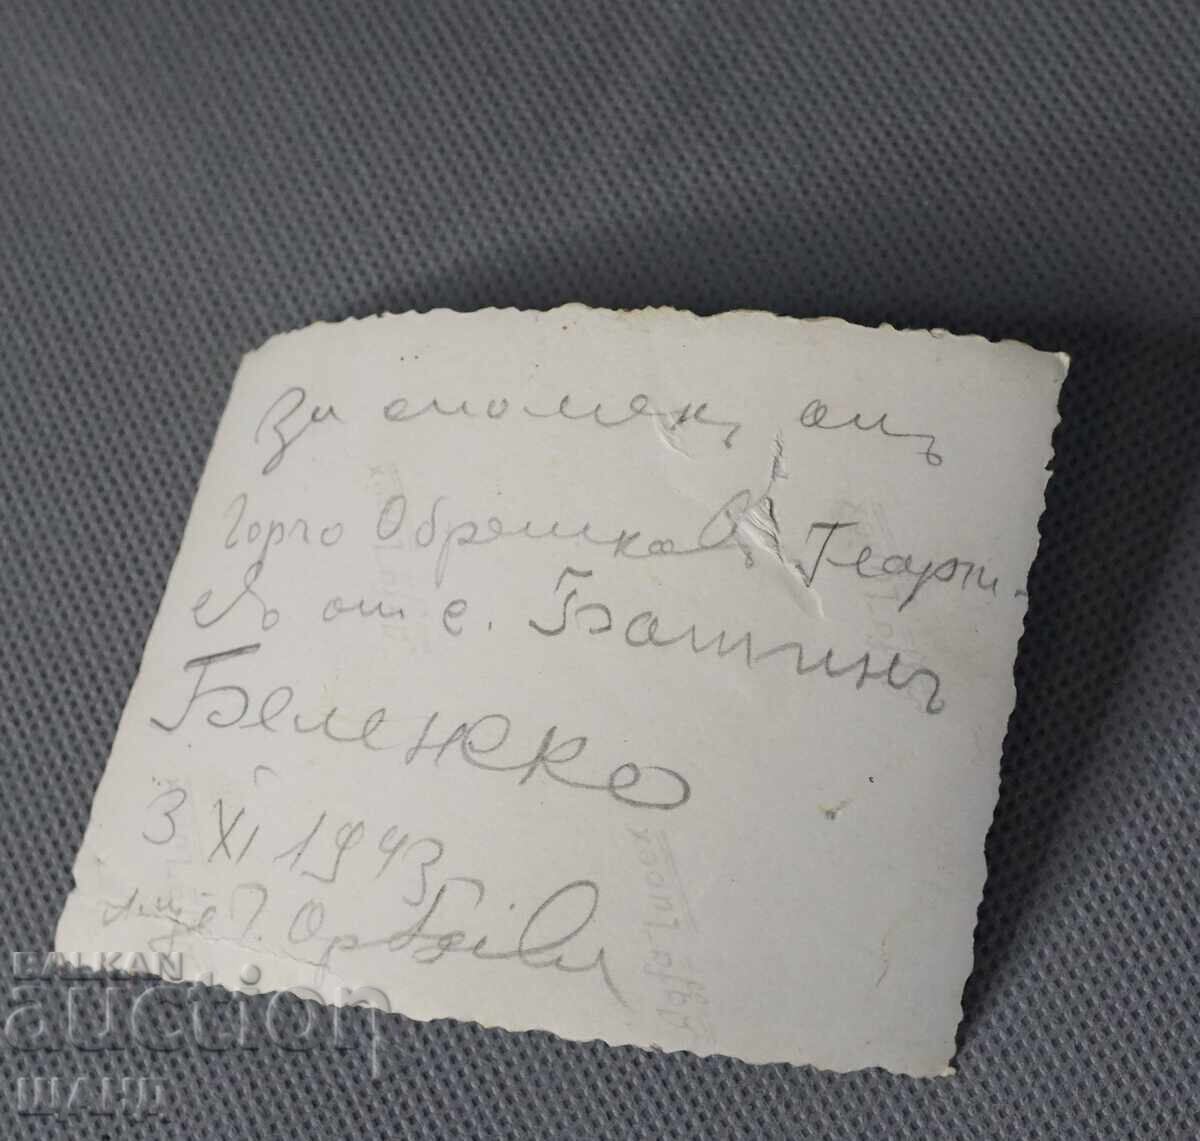 За споменъ отъ
Горчо Обрешковъ Георги-
евъ от с. Батинъ
Беленско
3 XI 1943
BALKAN
auction
ЩАНД